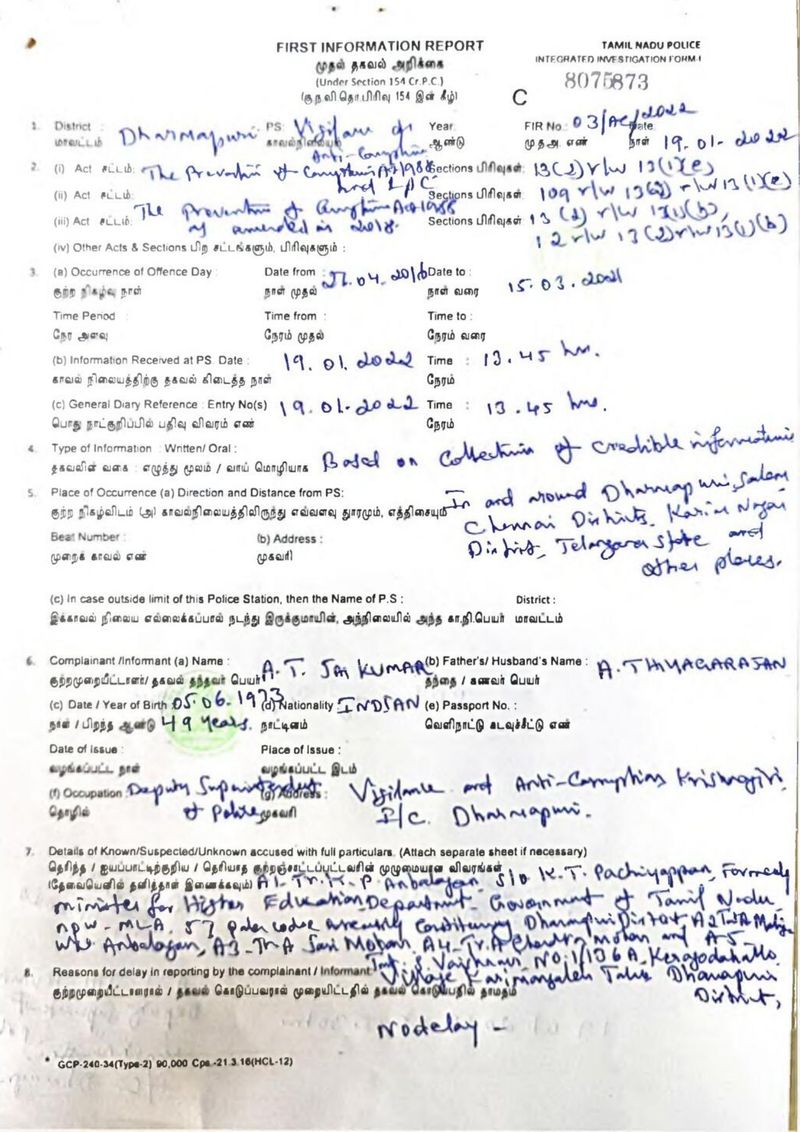 FIRST INFORMATION REPORT
TAMIL NADU POLICE
முதல் தகவல் அறிக்கை
INTEGRATED INVESTIGATION FORM-I
(Under Section 154 Cr.P.C.)
8075873
(கு.ந.வி.தொ.பிரிவு 154 இன் கீழ்)
C
1. District : Dharmapuri PS: Vigilance & Anti-Corruption Year FIR No : 03/AC/2022 Date
மாவட்டம் காவல்நிலையம் ஆண்டு மு.த.அ. எண் நாள் 19.01.2022
2. (i) Act சட்டம்: The Prevention of Corruption Act 1988 Sections பிரிவுகள்: 13(2) r/w 13(1)(e)
(ii) Act சட்டம்: and IPC Sections பிரிவுகள் 109 r/w 13(2) r/w 13(1)(e)
(iii) Act சட்டம்: The Prevention of Corruption Act 1988 Sections பிரிவுகள் 13(2) r/w 13(1)(b),
as amended in 2018. 12 r/w 13(2) r/w 13(1)(b)
(iv) Other Acts & Sections பிற சட்டங்களும், பிரிவுகளும் :
3. (a) Occurrence of Offence Day : Date from : 27.04.2016 Date to :
குற்ற நிகழ்வு நாள் நாள் முதல் நாள் வரை 15.03.2021
Time Period : Time from : Time to :
நேர அளவு நேரம் முதல் நேரம் வரை
(b) Information Received at PS. Date : 19.01.2022 Time : 13.45 hrs.
காவல் நிலையத்திற்கு தகவல் கிடைத்த நாள் நேரம்
(c) General Diary Reference : Entry No(s) 19.01.2022 Time : 13.45 hrs.
பொது நாட்குறிப்பில் பதிவு விவரம் எண் நேரம்
4. Type of Information : Written/ Oral :
தகவலின் வகை : எழுத்து மூலம் / வாய் மொழியாக Based on Collection of credible informations
5. Place of Occurrence (a) Direction and Distance from PS: In and around Dharmapuri, Salem
குற்ற நிகழ்விடம் (அ) காவல்நிலையத்திலிருந்து எவ்வளவு தூரமும், எத்திசையும் Chennai Districts, Karim Nagar
Beat Number : (b) Address : District, Telangana State and
முறைக் காவல் எண் முகவரி other places.
(c) In case outside limit of this Police Station, then the Name of P.S : District :
இக்காவல் நிலைய எல்லைக்கப்பால் நடந்து இருக்குமாயின், அந்நிலையில் அந்த கா.நி.பெயர் மாவட்டம்
6. Complainant /Informant (a) Name : A.T. SAI KUMAR (b) Father's/ Husband's Name : A. THIYAGARAJAN
குற்றமுறையீட்டாளர்/ தகவல் தந்தவர் பெயர் தந்தை / கணவர் பெயர்
(c) Date / Year of Birth : 05.06.1973 (d) Nationality INDIAN (e) Passport No. :
நாள் / பிறந்த ஆண்டு 49 years. நாட்டினம் வெளிநாட்டு கடவுச்சீட்டு எண்
Date of Issue : Place of Issue :
வழங்கப்பட்ட நாள் வழங்கப்பட்ட இடம்
(f) Occupation : Deputy Superintendent (g) Address : Vigilance and Anti-Corruption Krishnagiri,
தொழில் of Police முகவரி I/c. Dharmapuri.
7. Details of Known/Suspected/Unknown accused with full particulars. (Attach separate sheet if necessary)
தெரிந்த / ஐயப்பாட்டிற்குறிய / தெரியாத குற்றஞ்சாட்டப்பட்டவரின் முழுமையான விவரங்கள்
(தேவையெனில் தனித்தாள் இணைக்கவும்) A1- Tr. K.P. Anbalagan, S/o K.T. Pachiyappan, Formerly
minister for Higher Education Department, Government of Tamil Nadu,
now- MLA, 57 Palacode Assembly Constituency Dharmapuri District, A2 Tmt. A Malliga
W/o Anbalagan, A3- Tr. A Sasi Mohan, A4- Tr. A Chandra mohan and A5
Tmt. S Vaishnavi NO.1/136 A, Keragodahalli
8. Reasons for delay in reporting by the complainant / Informant : Village Karimangalam Taluk Dharmapuri
குற்றமுறையீட்டாளரால் / தகவல் கொடுப்பவரால் முறையிட்டதில் தகவல் கொடுப்பதில் தாமதம் District,
No delay -
* GCP-240-34(Type-2) 90,000 Cps.-21.3.16(HCL-12)